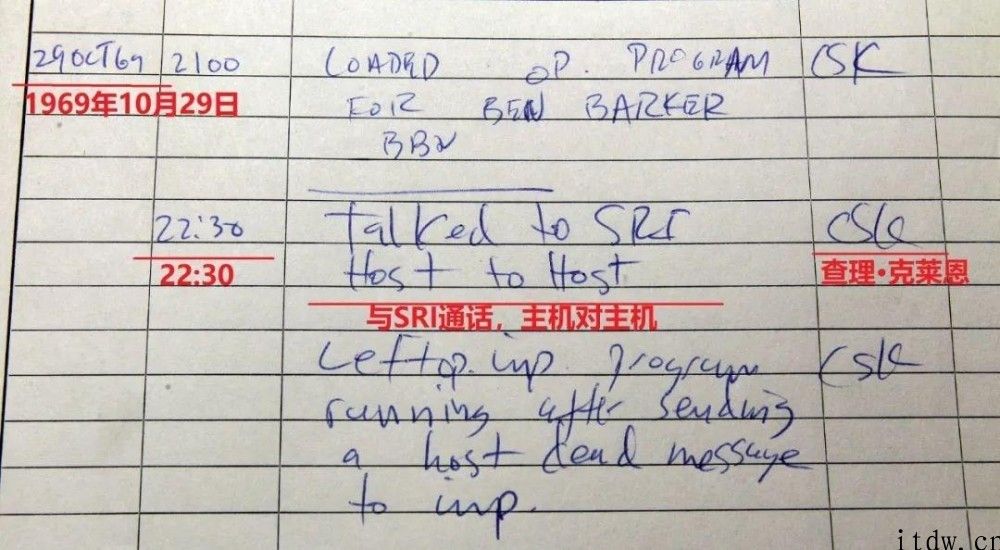 29OCT69 2100 LOADED OP. PROGRAM CSK
1969年10月29日
FOR BEN BARKER
BBN
22:30 Talked to SRI CSK
Host to Host
22:30
查理·克莱恩
与SRI通话，主机对主机
Left op. imp. program CSK
running after sending
a host dead message
to imp.
itdw.cn